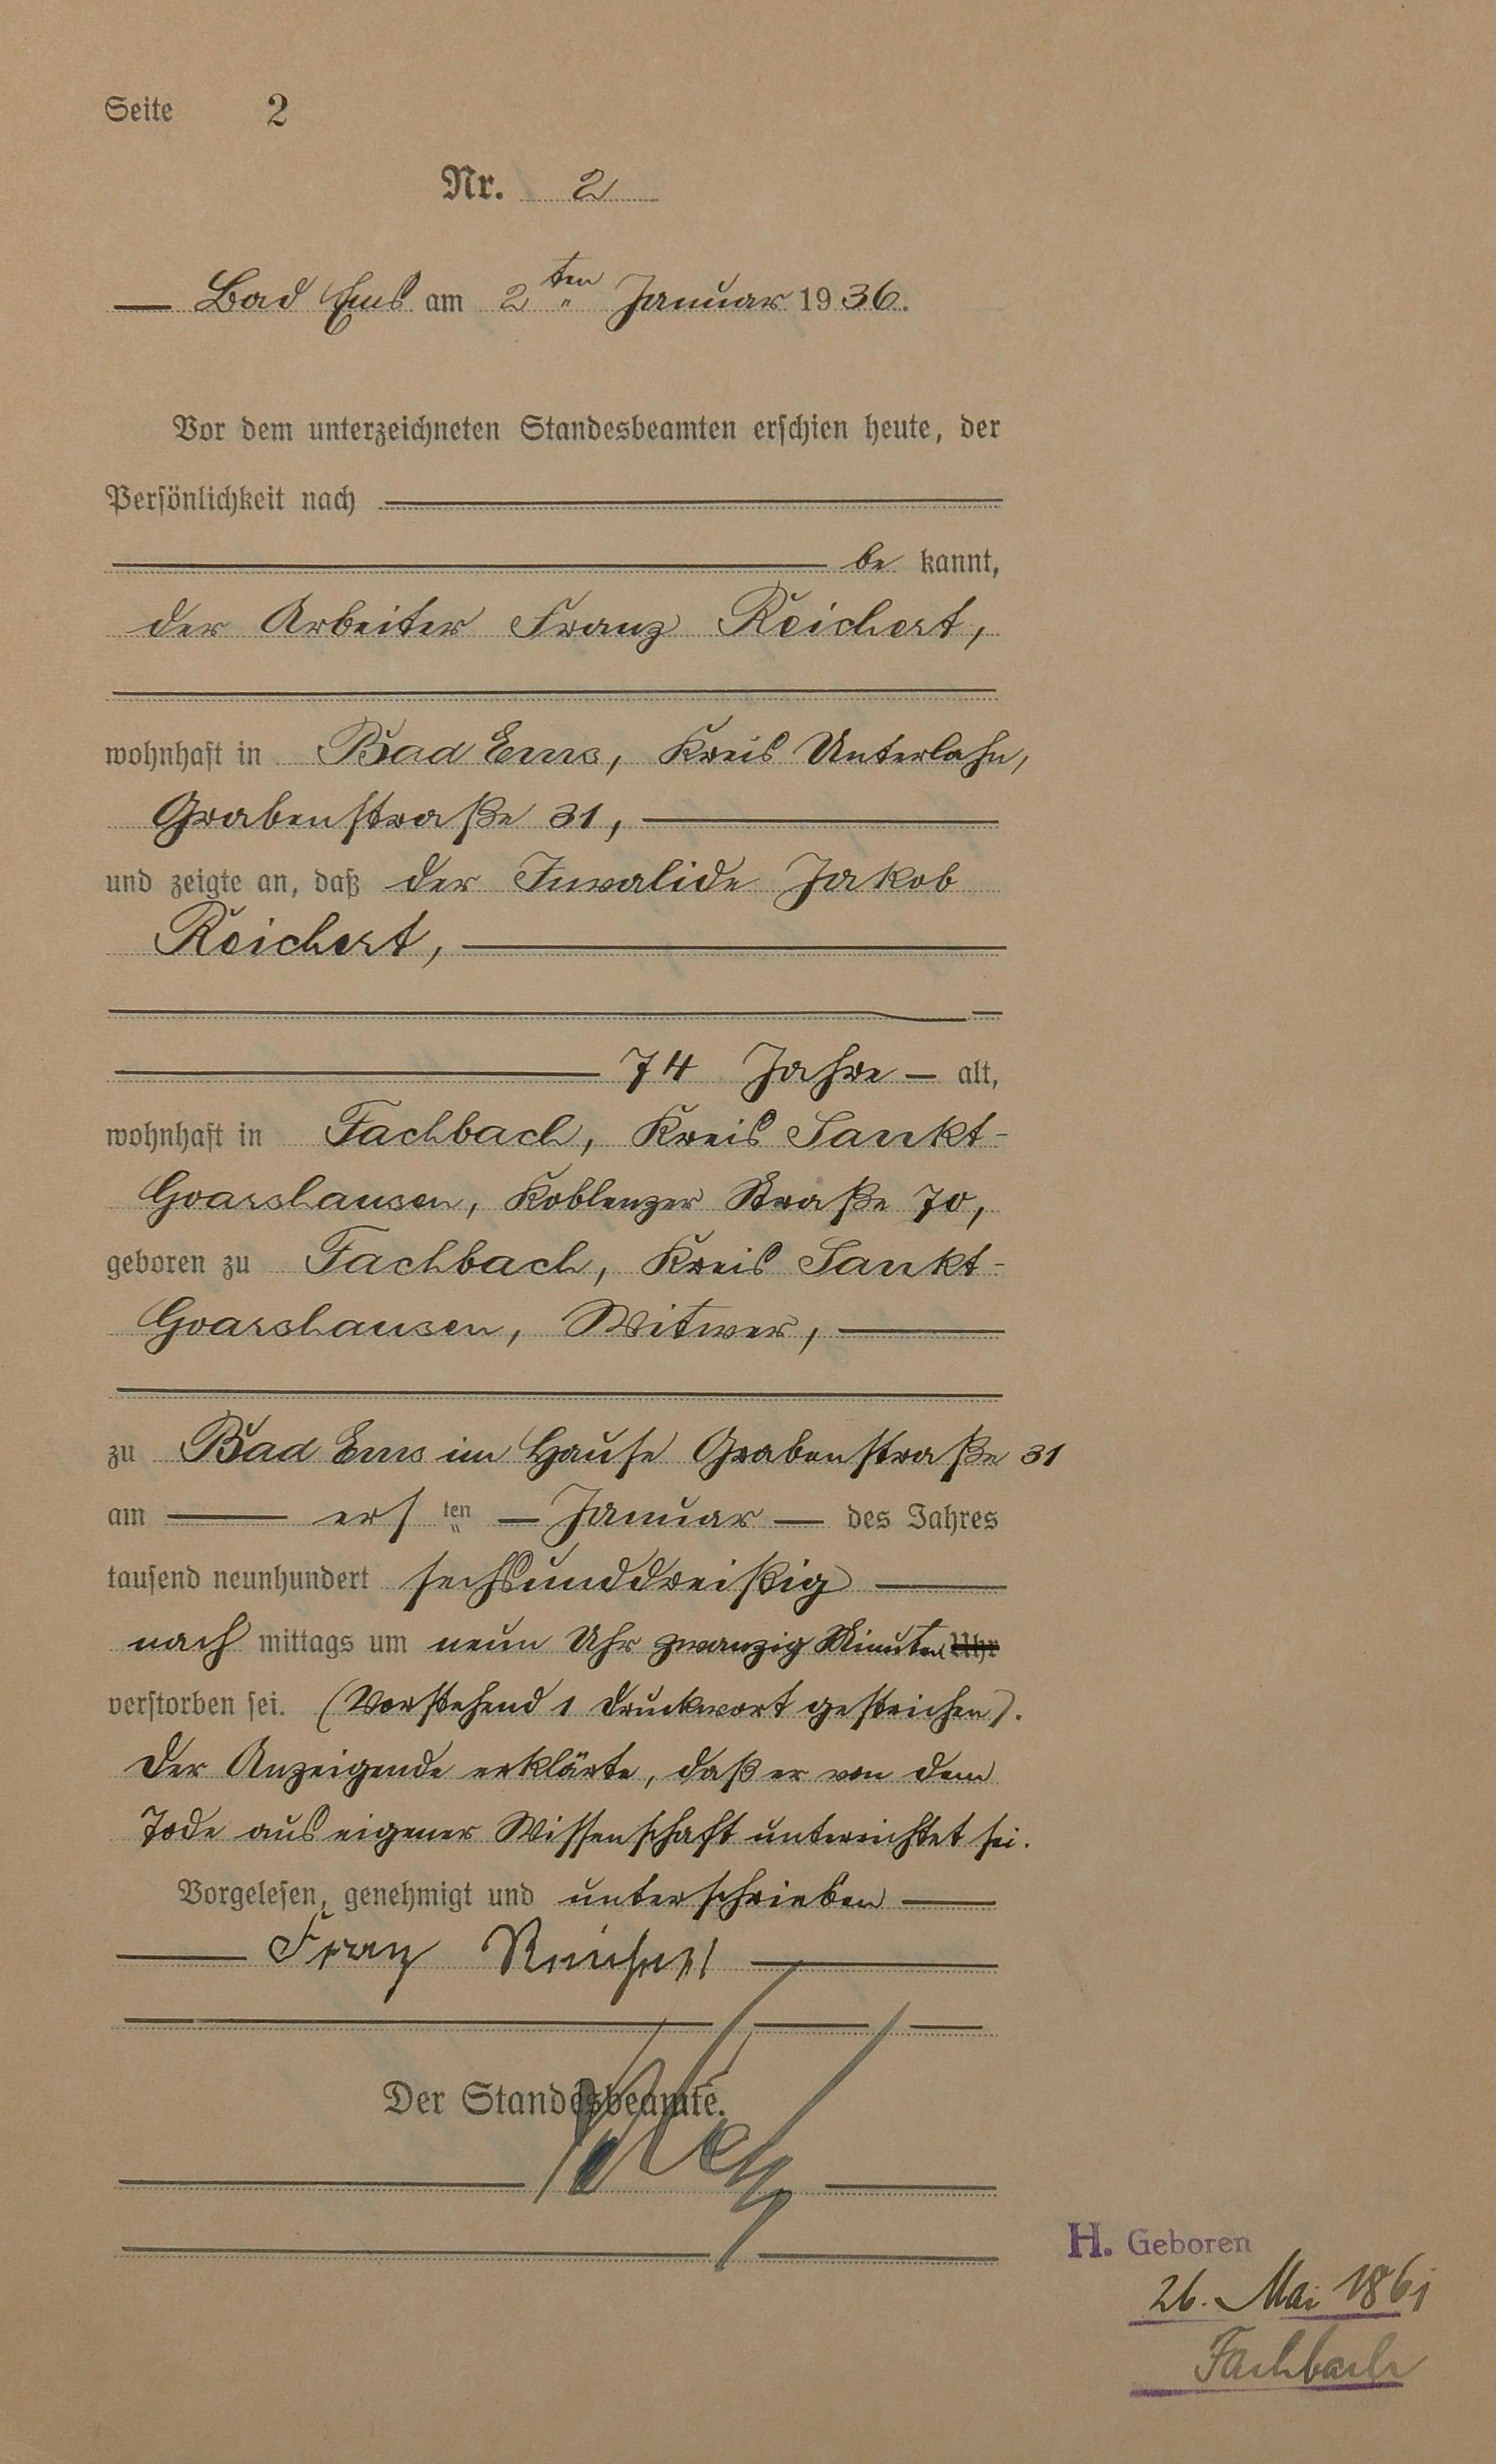 Seite 2
Nr. 2
Bad Ems am 2ten Januar 1936.
Vor dem unterzeichneten Standesbeamten erschien heute, der
Persönlichkeit nach
be kannt,
der Arbeiter Franz Reichert,
wohnhaft in Bad Ems, Kreis Unterlahn,
Grabenstraße 31,
und zeigte an, daß der Invalide Jakob
Reichert,
74 Jahre — alt,
wohnhaft in Fachbach, Kreis Sankt-
Goarshausen, Koblenzer Straße 70,
geboren zu Fachbach, Kreis Sankt-
Goarshausen, Witwer,
zu Bad Ems im Hause Grabenstraße 31
am — ersten — Januar — des Jahres
tausend neunhundert sechsunddreißig
nach mittags um neun Uhr zwanzig Minuten Uhr
verstorben sei. (Vorstehend 1 Druckwort gestrichen).
Der Anzeigende erklärte, daß er von dem
Tode aus eigener Wissenschaft unterrichtet sei.
Vorgelesen, genehmigt und unterschrieben
Franz Reichert
Der Standesbeamte.
H. Geboren
26. Mai 1861
Fachbach